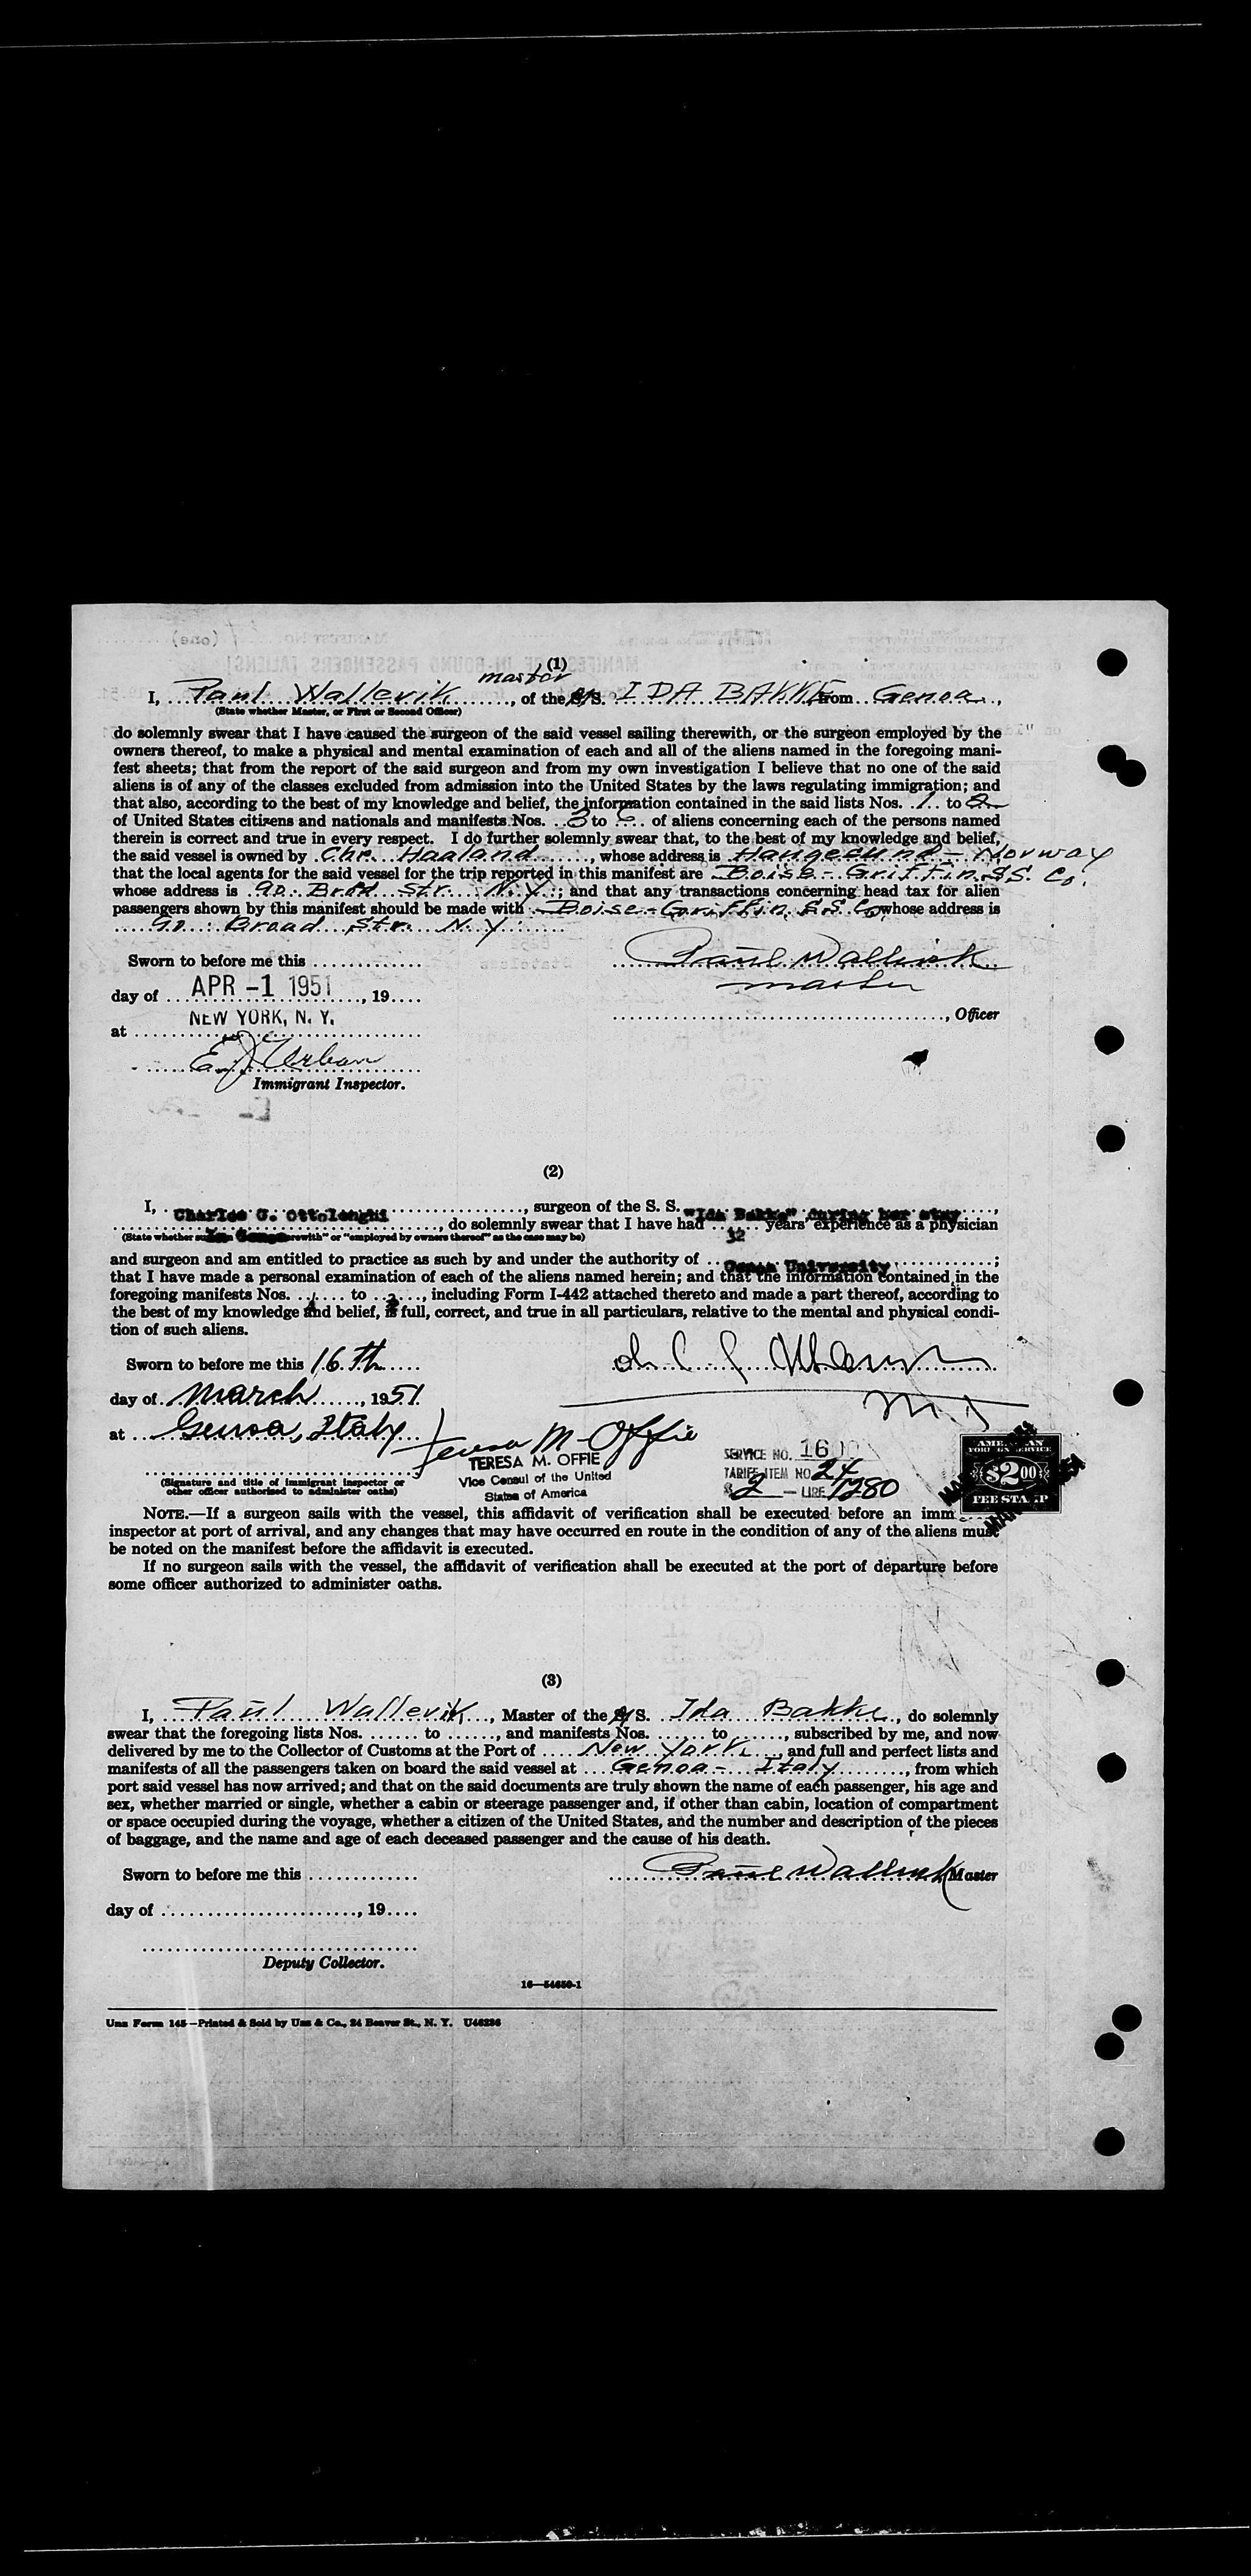 (1)
master
I, Paul Wallevik, of the M/S. IDA BAKKE from Genoa,
(State whether Master, or First or Second Officer)
do solemnly swear that I have caused the surgeon of the said vessel sailing therewith, or the surgeon employed by the
owners thereof, to make a physical and mental examination of each and all of the aliens named in the foregoing mani-
fest sheets; that from the report of the said surgeon and from my own investigation I believe that no one of the said
aliens is of any of the classes excluded from admission into the United States by the laws regulating immigration; and
that also, according to the best of my knowledge and belief, the information contained in the said lists Nos. 1 to 2
of United States citizens and nationals and manifests Nos. 3 to of aliens concerning each of the persons named
therein is correct and true in every respect. I do further solemnly swear that, to the best of my knowledge and belief,
the said vessel is owned by Chr. Haaland, whose address is Haugesund - Norway
that the local agents for the said vessel for the trip reported in this manifest are Boise - Griffin S.S. Co.
whose address is 90 Brod str. N.Y.; and that any transactions concerning head tax for alien
passengers shown by this manifest should be made with Boise - Griffin S.S. Co whose address is
90 Broad Str. N.Y.
Sworn to before me this
Paul Wallevik
master
day of APR -1 1951, 19
, Officer
NEW YORK, N. Y.
at
E J Urban
Immigrant Inspector.
(2)
I, Charles G. Ottolenghi, surgeon of the S. S. "Ida Bakke" during her stay,
in Genoa, do solemnly swear that I have had 32 years' experience as a physician
(State whether su rewith" or "employed by owners thereof" as the case may be)
and surgeon and am entitled to practice as such by and under the authority of Genoa University;
that I have made a personal examination of each of the aliens named herein; and that the information contained in the
foregoing manifests Nos. to , including Form I-442 attached thereto and made a part thereof, according to
the best of my knowledge and belief, is full, correct, and true in all particulars, relative to the mental and physical condi-
tion of such aliens.
Sworn to before me this 16 th
day of March, 1951
at Genoa, Italy
Teresa M. Offie
TERESA M. OFFIE
Vice Consul of the United
States of America
SERVICE NO. 1600
TARIFF ITEM NO. 24
$ 2 — LIRE 1280
AMERICAN
FOREIGN SERVICE
$2.00
FEE STAMP
(Signature and title of immigrant inspector or
other officer authorized to administer oaths)
NOTE.—If a surgeon sails with the vessel, this affidavit of verification shall be executed before an imm
inspector at port of arrival, and any changes that may have occurred en route in the condition of any of the aliens must
be noted on the manifest before the affidavit is executed.
If no surgeon sails with the vessel, the affidavit of verification shall be executed at the port of departure before
some officer authorized to administer oaths.
(3)
I, Paul Wallevik, Master of the M/S. Ida Bakke, do solemnly
swear that the foregoing lists Nos. to , and manifests Nos. to , subscribed by me, and now
delivered by me to the Collector of Customs at the Port of New York, and full and perfect lists and
manifests of all the passengers taken on board the said vessel at Genoa - Italy, from which
port said vessel has now arrived; and that on the said documents are truly shown the name of each passenger, his age and
sex, whether married or single, whether a cabin or steerage passenger and, if other than cabin, location of compartment
or space occupied during the voyage, whether a citizen of the United States, and the number and description of the pieces
of baggage, and the name and age of each deceased passenger and the cause of his death.
Sworn to before me this
Paul Wallevik Master
day of , 19
Deputy Collector.
16—54650-1
Unz Form 145—Printed & Sold by Unz & Co., 24 Beaver St., N. Y. U46236